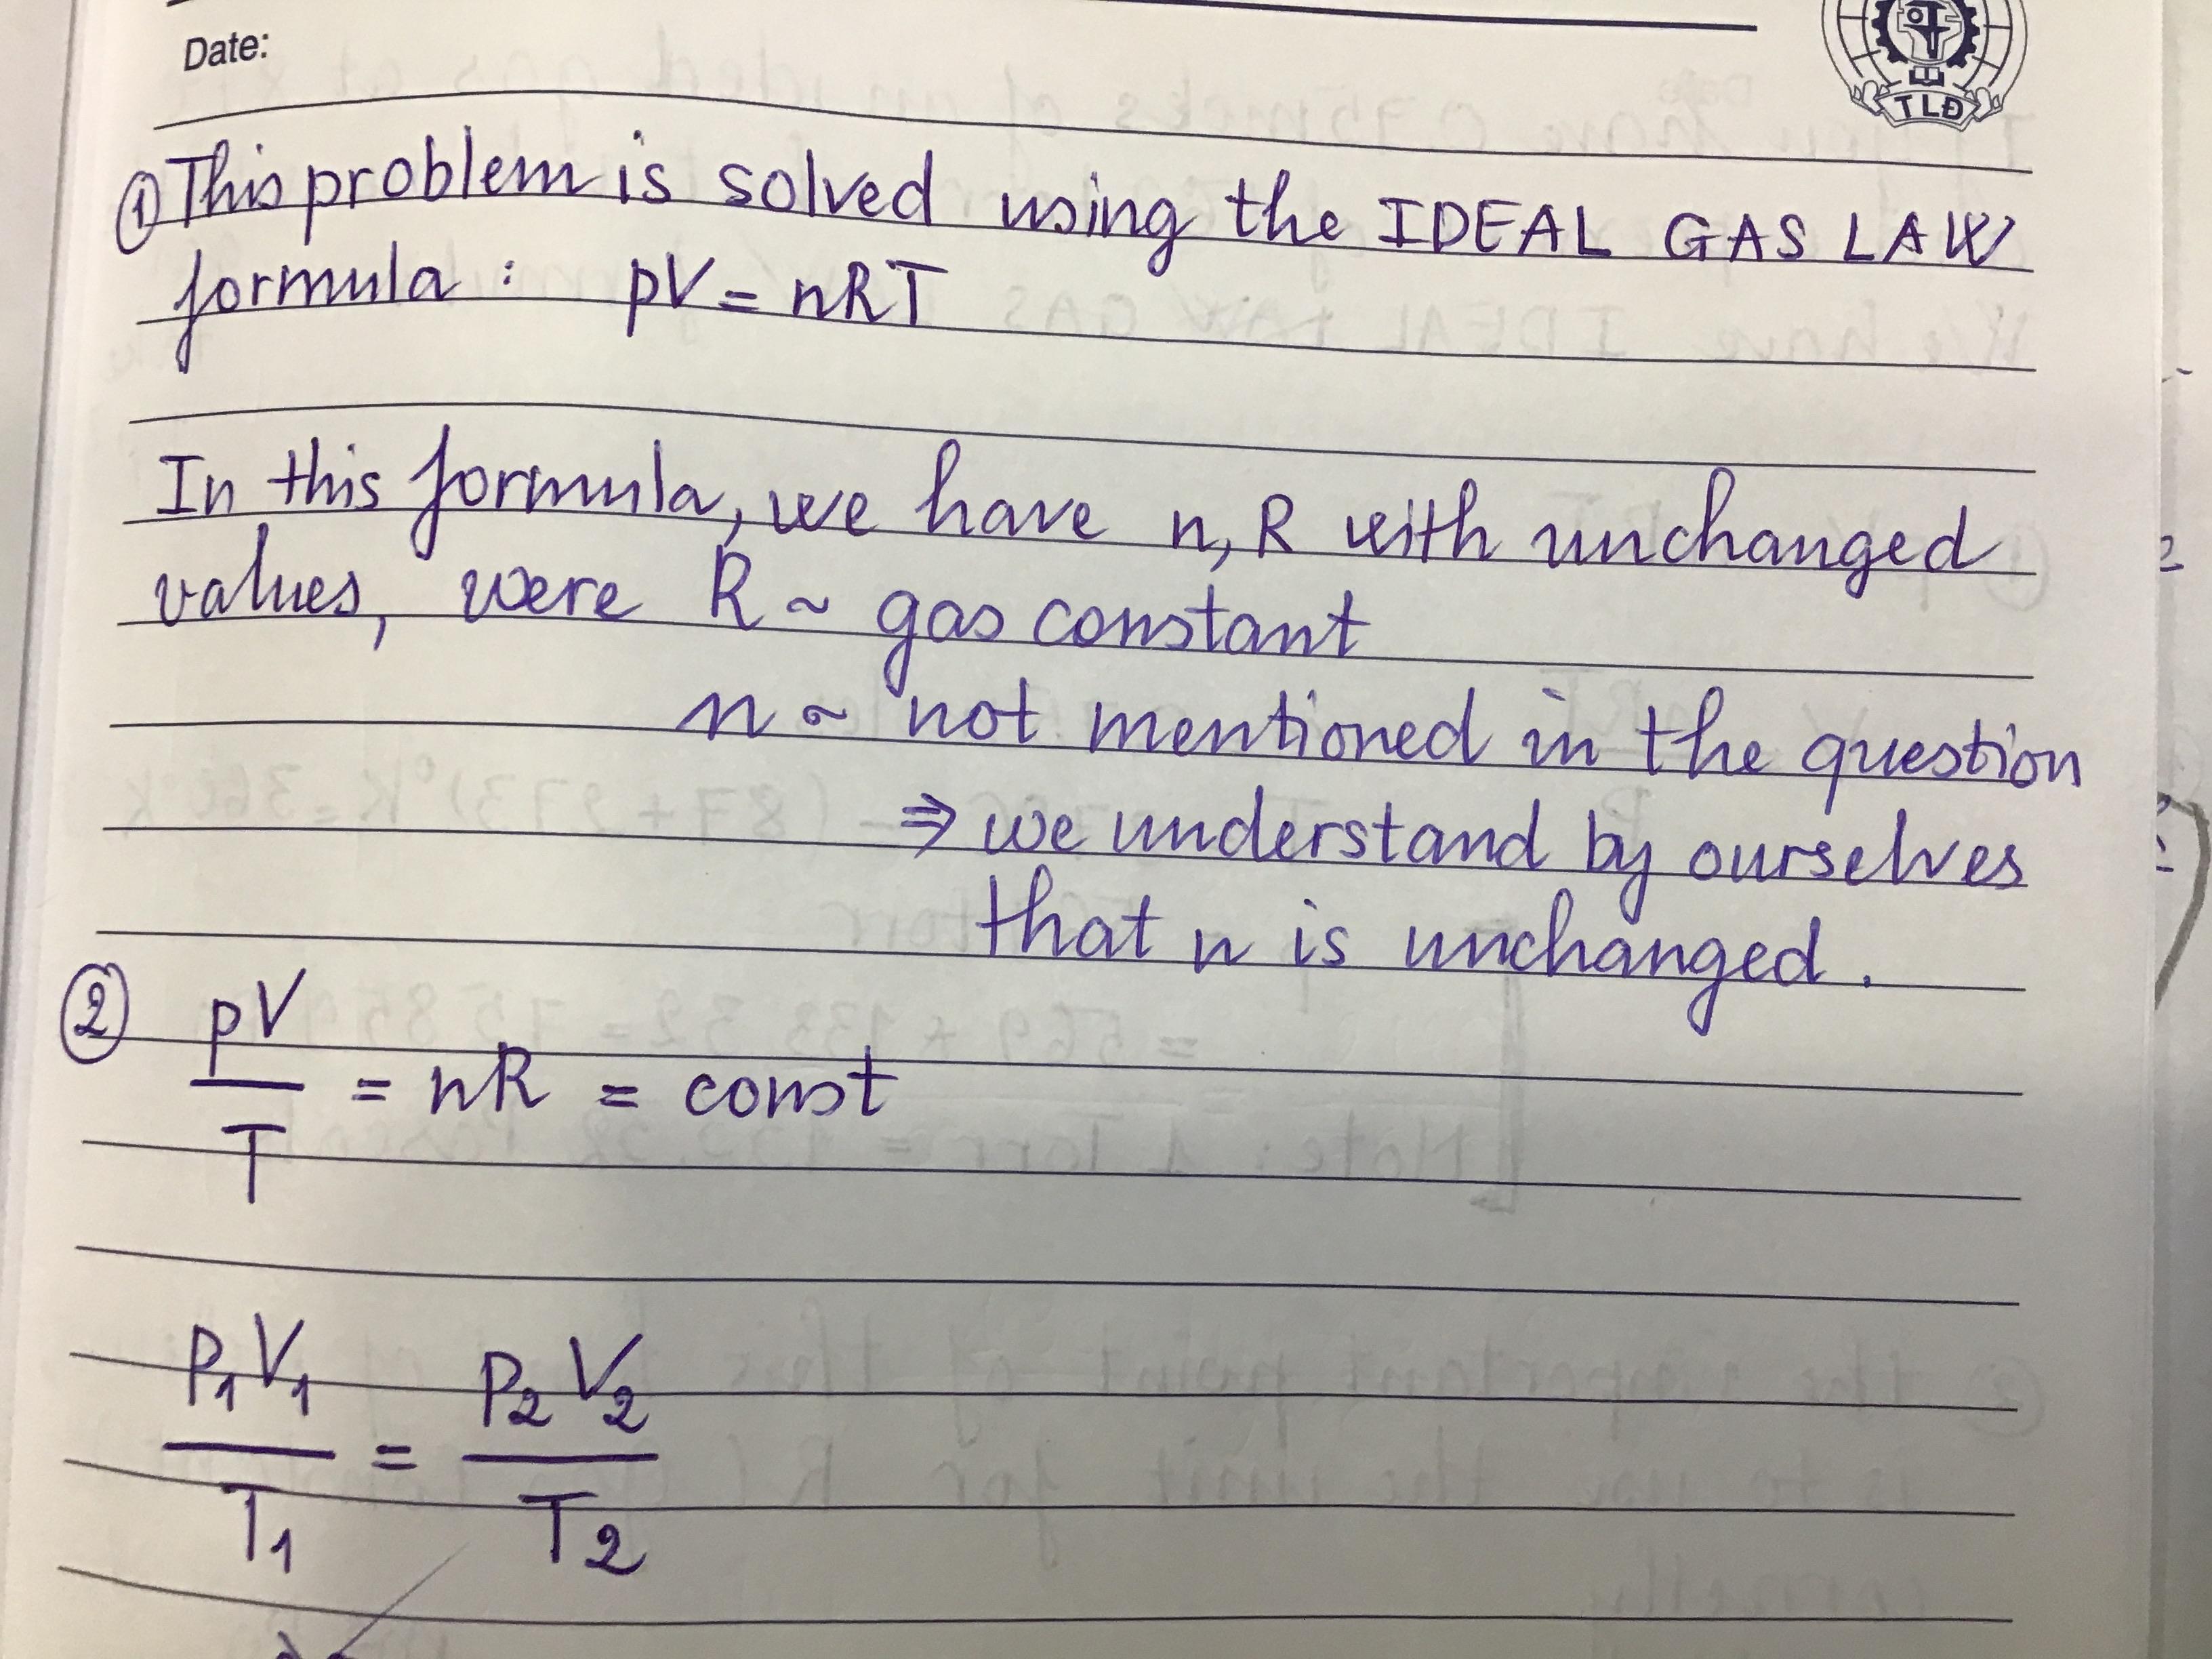 Date:
TLĐ
① This problem is solved using the IDEAL GAS LAW
formula : pV = nRT
In this formula, we have n, R with unchanged
values, were R ~ gas constant
n ~ not mentioned in the question
⇒ we understand by ourselves
that n is unchanged.
② pV/T = nR = const
P₁V₁/T₁ = P₂V₂/T₂